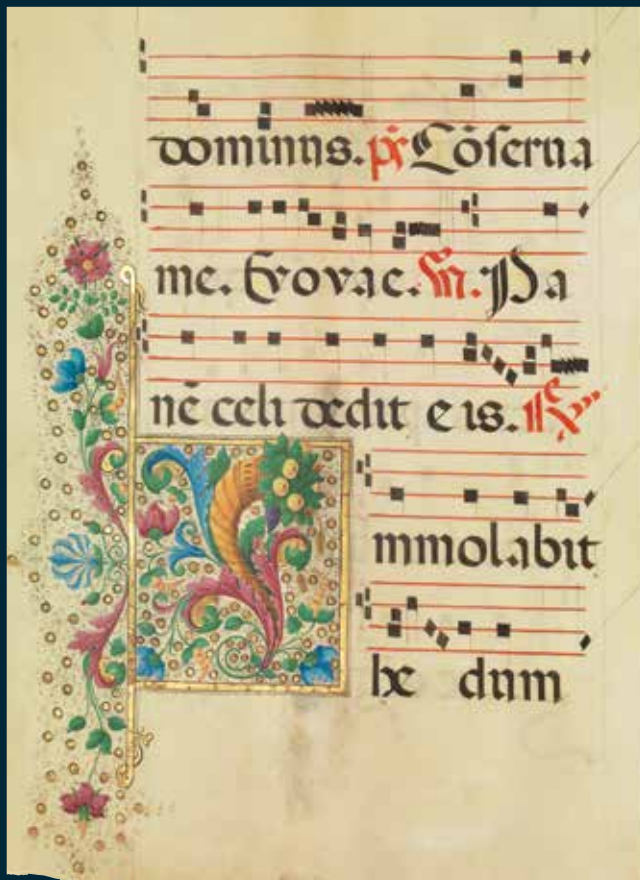 dominus. ps Cōserua
me. Evovae. Pa
nē celi dedit e is.
mmolabit
he dum